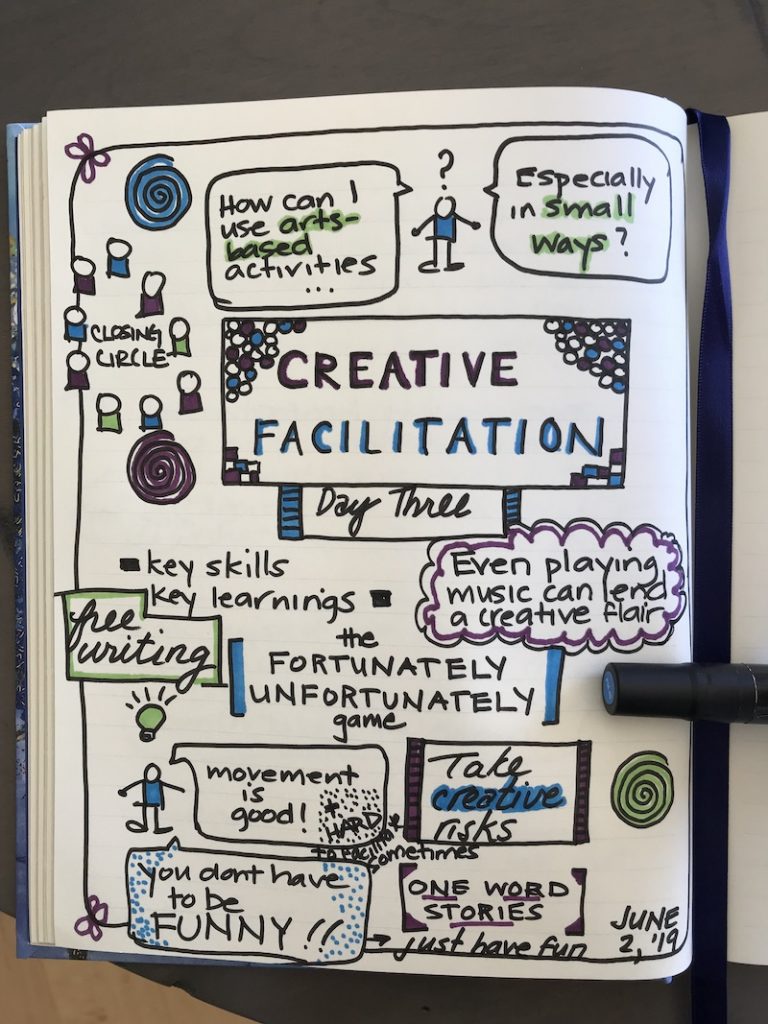 How can I
use arts-
based
activities
...
?
Especially
in small
ways?
CLOSING
CIRCLE
CREATIVE
FACILITATION
Day Three
key skills
key learnings
Even playing
music can lend
a creative flair
free
writing
the
FORTUNATELY
UNFORTUNATELY
game
movement
is
good!
+
HARD
to facilitate
sometimes
Take
creative
risks
you dont have
to be
FUNNY!!
ONE WORD
STORIES
→ just have fun
JUNE
2, '19